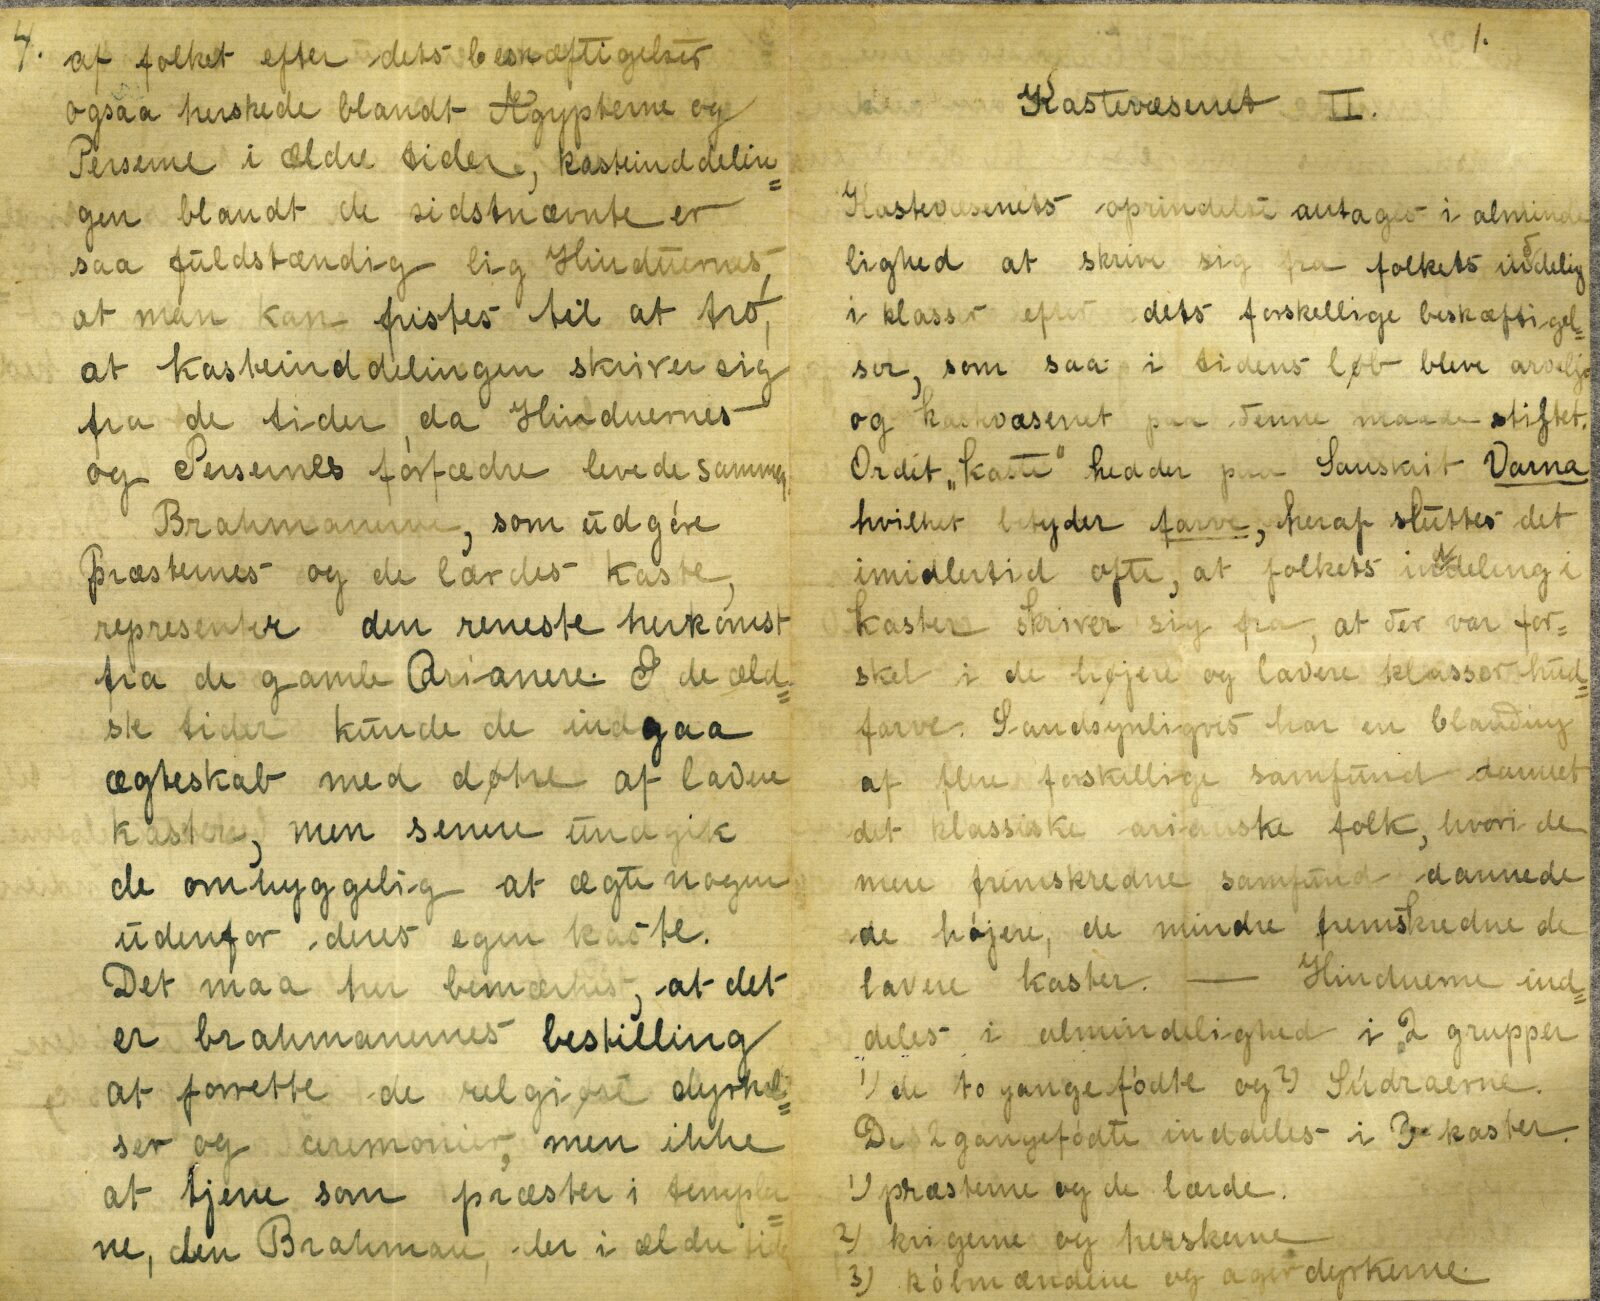 4.
af folket efter dets beskæftigelser
ogsaa herskede blandt Ægypterne og
Perserne i ældre tider, kasteinddelin=
gen blandt de sidstnævnte er
saa fuldstændig lig Hinduernes,
at man kan fristes til at tro,
at kasteinddelingen skriver sig
fra de tider, da Hinduernes
og Persernes forfædre levede sammen.
Brahmanerne, som udgöre
Præsternes og de lærdes kaste,
representer den reneste herkomst
fra de gamle Arianere. I de æld=
ste tider kunde de indgaa
ægteskab med døtre af lavere
kaster, men senere undgik
de omhyggelig at ægte nogen
udenfor deres egen kaste.
Det maa her bemærkes, at det
er brahmanernes bestilling
at forrette de religiøse dyrkel=
ser og ceremonier, men ikke
at tjene som præster i temple=
ne, den Brahman, der i ældre tid
1.
Kastevæsenet II.
Kastevæsenets oprindelse antages i alminde
lighed at skrive sig fra folkets inddeling
i klasser efter dets forskellige beskæftigel=
ser, som saa i tidens løb bleve arvelige
og kastevæsenet paa denne maade stiftet.
Ordet „kaste" hedder paa Sanskrit Varna
hvilket betyder farve, heraf sluttes det
imidlertid ofte, at folkets inddeling i
kaster skriver sig fra, at der var for=
skel i de højere og lavere klasser hud=
farve. Sandsynligvis har en blanding
af flere forskellige samfund dannet
det klassiske arianske folk, hvori de
mere fremskredne samfund dannede
de højere, de mindre fremskredne de
lavere kaster. — Hinduerne ind=
deles i almindelighed i 2 grupper
1) de to gange fødte og 2) Sûdraerne.
De 2 gangefödte inddeles i 3 kaster.
1) præsterne og de lærde.
2) krigerne og herskerne
3) kóbmændene og agerdyrkerne.